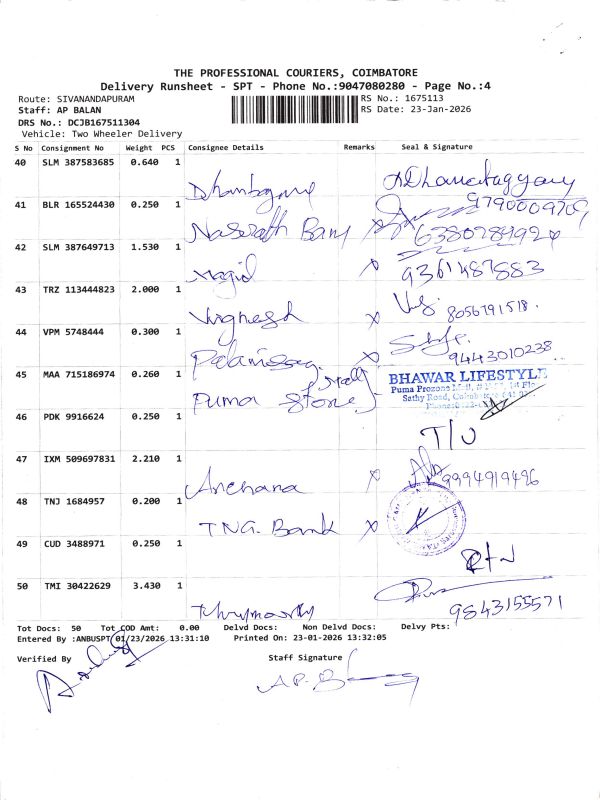 THE PROFESSIONAL COURIERS, COIMBATORE
Delivery Runsheet - SPT - Phone No.:9047080280 - Page No.:4
Route: SIVANANDAPURAM
RS No.: 1675113
Staff: AP BALAN
RS Date: 23-Jan-2026
DRS No.: DCJB167511304
Vehicle: Two Wheeler Delivery
S No Consignment No Weight PCS Consignee Details Remarks Seal & Signature
40 SLM 387583685 0.640 1
9790009709
41 BLR 165524430 0.250 1
Nasrath Banu
42 SLM 387649713 1.530 1
Majid 9361487883
43 TRZ 113444823 2.000 1
Vignesh 8056791518.
44 VPM 5748444 0.300 1
Palanisamy 9443010238
45 MAA 715186974 0.260 1
BHAWAR LIFESTYLE
Puma Prozone Mall, 1st Flo
Sathy Road, Coimbatore 641
Puma Store
46 PDK 9916624 0.250 1
T/U
47 IXM 509697831 2.210 1
Archana 9994919496
48 TNJ 1684957 0.200 1
TNG. Bank
49 CUD 3488971 0.250 1
RTN
50 TMI 30422629 3.430 1
9843155571
Tot Docs: 50 Tot COD Amt: 0.00 Delvd Docs: Non Delvd Docs: Delvy Pts:
Entered By :ANBUSPT 01/23/2026 13:31:10 Printed On: 23-01-2026 13:32:05
Verified By Staff Signature